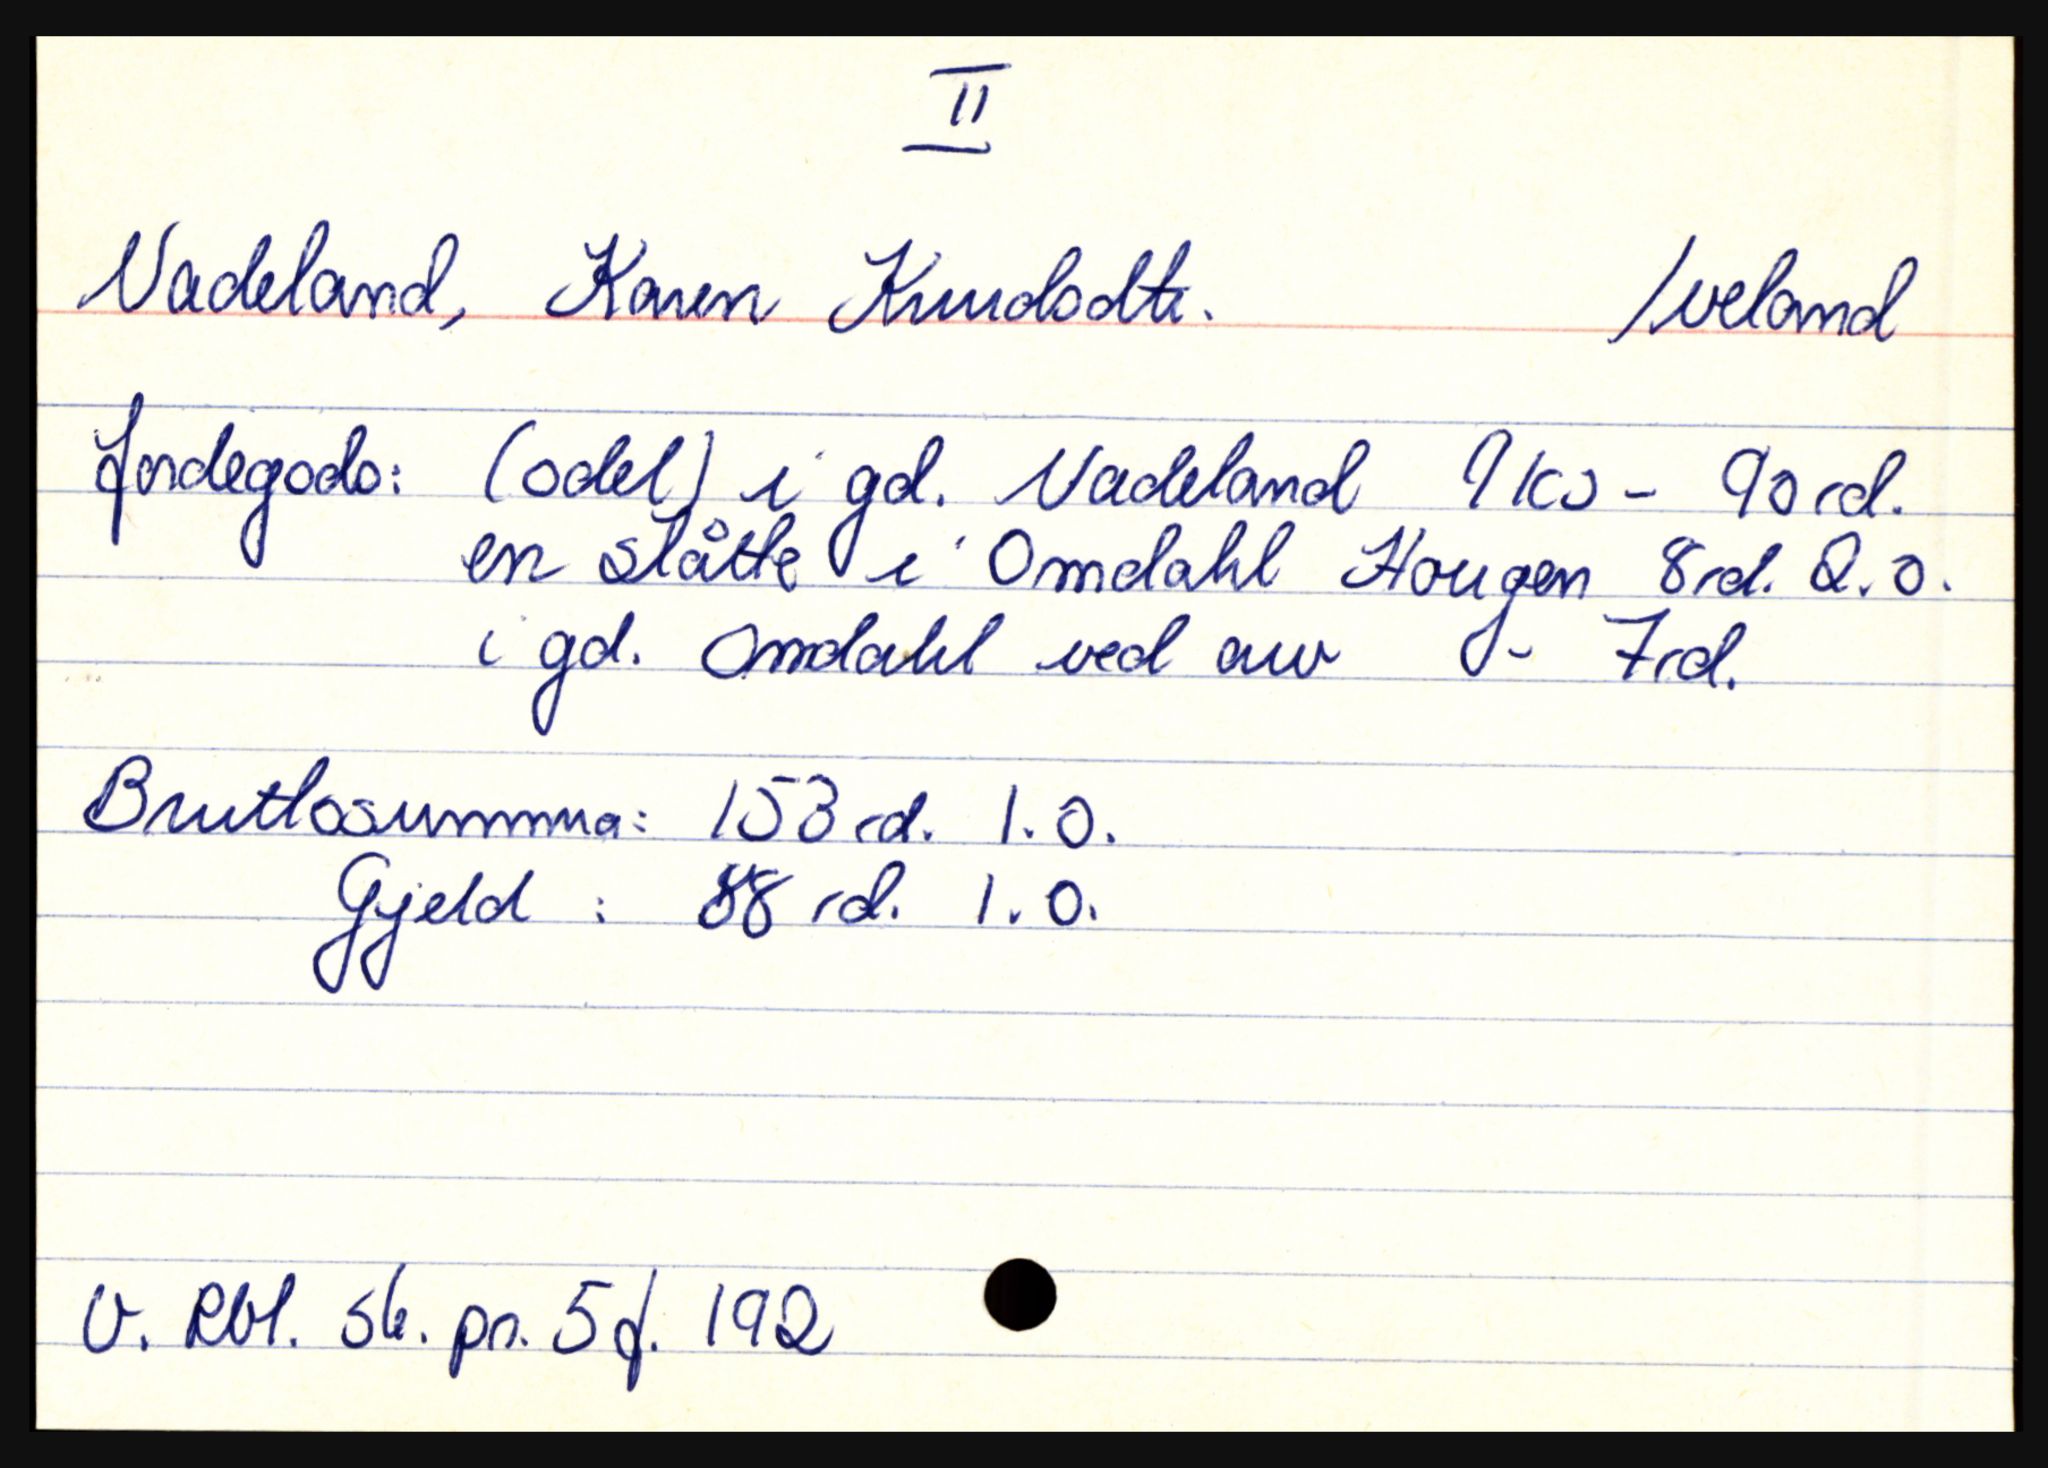 II
Vadeland, Karen Knudsdtr. Iveland
Jordegods: (odel) i gd. Vadeland 9 ks - 90 rd.
en slåtte i Omdahl Hougen 8 rd. 2. 0.
i gd. Omdahl ved auv - 7 rd.
Bruttosumma: 153 rd. 1. 0.
Gjeld : 88 rd. 1. 0.
V. Rbl. sk. pr. 5 f. 192